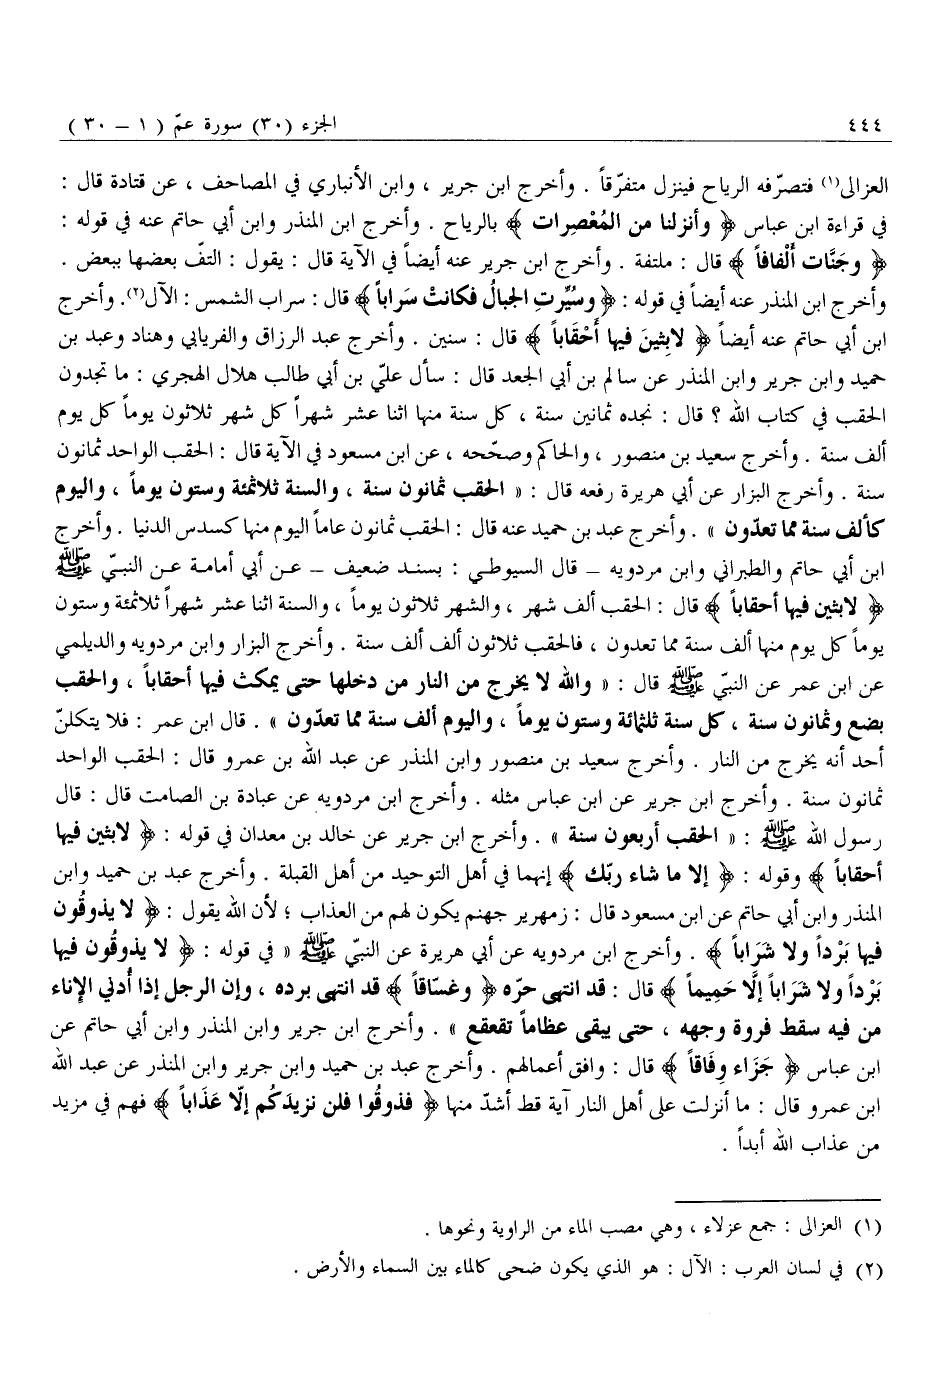 ٤٤٤ الجزء (٣٠) سورة عمّ ( ١ – ٣٠ )
العزالى(١) فتصرّفه الرياح فينزل متفرّقاً . وأخرج ابن جرير ، وابن الأنباري في المصاحف ، عن قتادة قال :
في قراءة ابن عباس ﴿ وأنزلنا من المُعْصِرات ﴾ بالرياح . وأخرج ابن المنذر وابن أبي حاتم عنه في قوله :
﴿ وجنَّات أَلْفافاً ﴾ قال : ملتفة . وأخرج ابن جرير عنه أيضاً في الآية قال : يقول : التفّ بعضها ببعض .
وأخرج ابن المنذر عنه أيضاً في قوله : ﴿ وسُيِّرتِ الجبالُ فكانتْ سَراباً ﴾ قال : سراب الشمس : الآل(٢). وأخرج
ابن أبي حاتم عنه أيضاً ﴿ لابِثينَ فيها أَحْقاباً ﴾ قال : سنين . وأخرج عبد الرزاق والفريابي وهناد وعبد بن
حميد وابن جرير وابن المنذر عن سالم بن أبي الجعد قال : سأل عليّ بن أبي طالب هلال الهجري : ما تجدون
الحقب في كتاب الله ؟ قال : نجده ثمانين سنة ، كل سنة منها اثنا عشر شهراً كل شهر ثلاثون يوماً كل يوم
ألف سنة . وأخرج سعيد بن منصور ، والحاكم وصحّحه ، عن ابن مسعود في الآية قال : الحقب الواحد ثمانون
سنة . وأخرج البزار عن أبي هريرة رفعه قال : « الحقب ثمانون سنة ، والسنة ثلاثمئة وستون يوماً ، واليوم
كألف سنة مما تعدّون » . وأخرج عبد بن حميد عنه قال : الحقب ثمانون عاماً اليوم منها كسدس الدنيا . وأخرج
ابن أبي حاتم والطبراني وابن مردويه – قال السيوطي : بسند ضعيف – عن أبي أمامة عن النبيّ ﷺ
﴿ لابثين فيها أحقاباً ﴾ قال : الحقب ألف شهر ، والشهر ثلاثون يوماً ، والسنة اثنا عشر شهراً ثلاثمئة وستون
يوماً كل يوم منها ألف سنة مما تعدون ، فالحقب ثلاثون ألف ألف سنة . وأخرج البزار وابن مردويه والديلمي
عن ابن عمر عن النبيّ ﷺ قال : « والله لا يخرج من النار من دخلها حتى يمكث فيها أحقاباً ، والحقب
بضع وثمانون سنة ، كل سنة ثلثمائة وستون يوماً ، واليوم ألف سنة مما تعدّون » . قال ابن عمر : فلا يتكلنّ
أحد أنه يخرج من النار . وأخرج سعيد بن منصور وابن المنذر عن عبد الله بن عمرو قال : الحقب الواحد
ثمانون سنة . وأخرج ابن جرير عن ابن عباس مثله . وأخرج ابن مردويه عن عبادة بن الصامت قال : قال
رسول الله ﷺ : « الحقب أربعون سنة » . وأخرج ابن جرير عن خالد بن معدان في قوله : ﴿ لابثين فيها
أحقاباً ﴾ وقوله : ﴿ إلا ما شاء ربّك ﴾ إنهما في أهل التوحيد من أهل القبلة . وأخرج عبد بن حميد وابن
المنذر وابن أبي حاتم عن ابن مسعود قال : زمهرير جهنم يكون لهم من العذاب ؛ لأن الله يقول : ﴿ لا يذوقُون
فيها بَرْداً ولا شَرَاباً ﴾ . وأخرج ابن مردويه عن أبي هريرة عن النبيّ ﷺ « في قوله : ﴿ لا يذوقُون فيها
بَرْداً ولا شَراباً إلَّا حَمِيماً ﴾ قال : قد انتهى حرّه ﴿ وغسّاقاً ﴾ قد انتهى برده ، وإن الرجل إذا أُدني الإناء
من فيه سقط فروة وجهه ، حتى يبقى عظاماً تقعقع » . وأخرج ابن جرير وابن المنذر وابن أبي حاتم عن
ابن عباس ﴿ جَزَاء وِفَاقاً ﴾ قال : وافق أعمالهم . وأخرج عبد بن حميد وابن جرير وابن المنذر عن عبد الله
ابن عمرو قال : ما أنزلت على أهل النار آية قط أشدّ منها ﴿ فذوقُوا فلن نزيدَكُم إلّا عَذَاباً ﴾ فهم في مزيد
من عذاب الله أبداً .
(١) العزالى : جمع عزلاء ، وهي مصب الماء من الراوية ونحوها .
(٢) في لسان العرب : الآل : هو الذي يكون ضحى كالماء بين السماء والأرض .